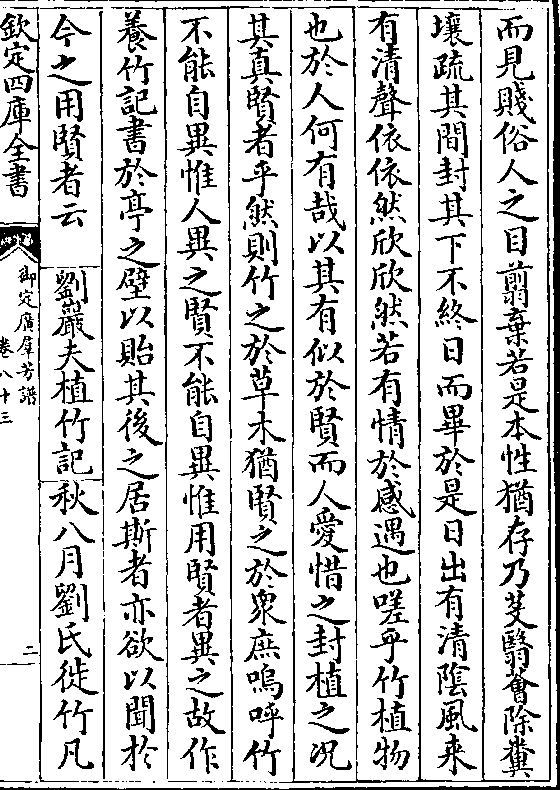 而見賤俗人之目翦棄若是本性猶存乃芟翳薈除糞
壤疏其間封其下不終日而畢於是日出有清陰風来
有清聲依依然欣欣然若有情於感遇也嗟乎竹植物
也於人何有哉以其有似於賢而人愛惜之封植之况
其真賢者乎然則竹之於草木猶賢之於衆庶嗚呼竹
不能自異惟人異之賢不能自異惟用賢者異之故作
養竹記書於亭之壁以貽其後之居斯者亦欲以聞於
今之用賢者云 劉巖夫植竹記 秋八月劉氏徙竹凡
欽定四庫全書
御定廣羣芳譜
卷八十三
二